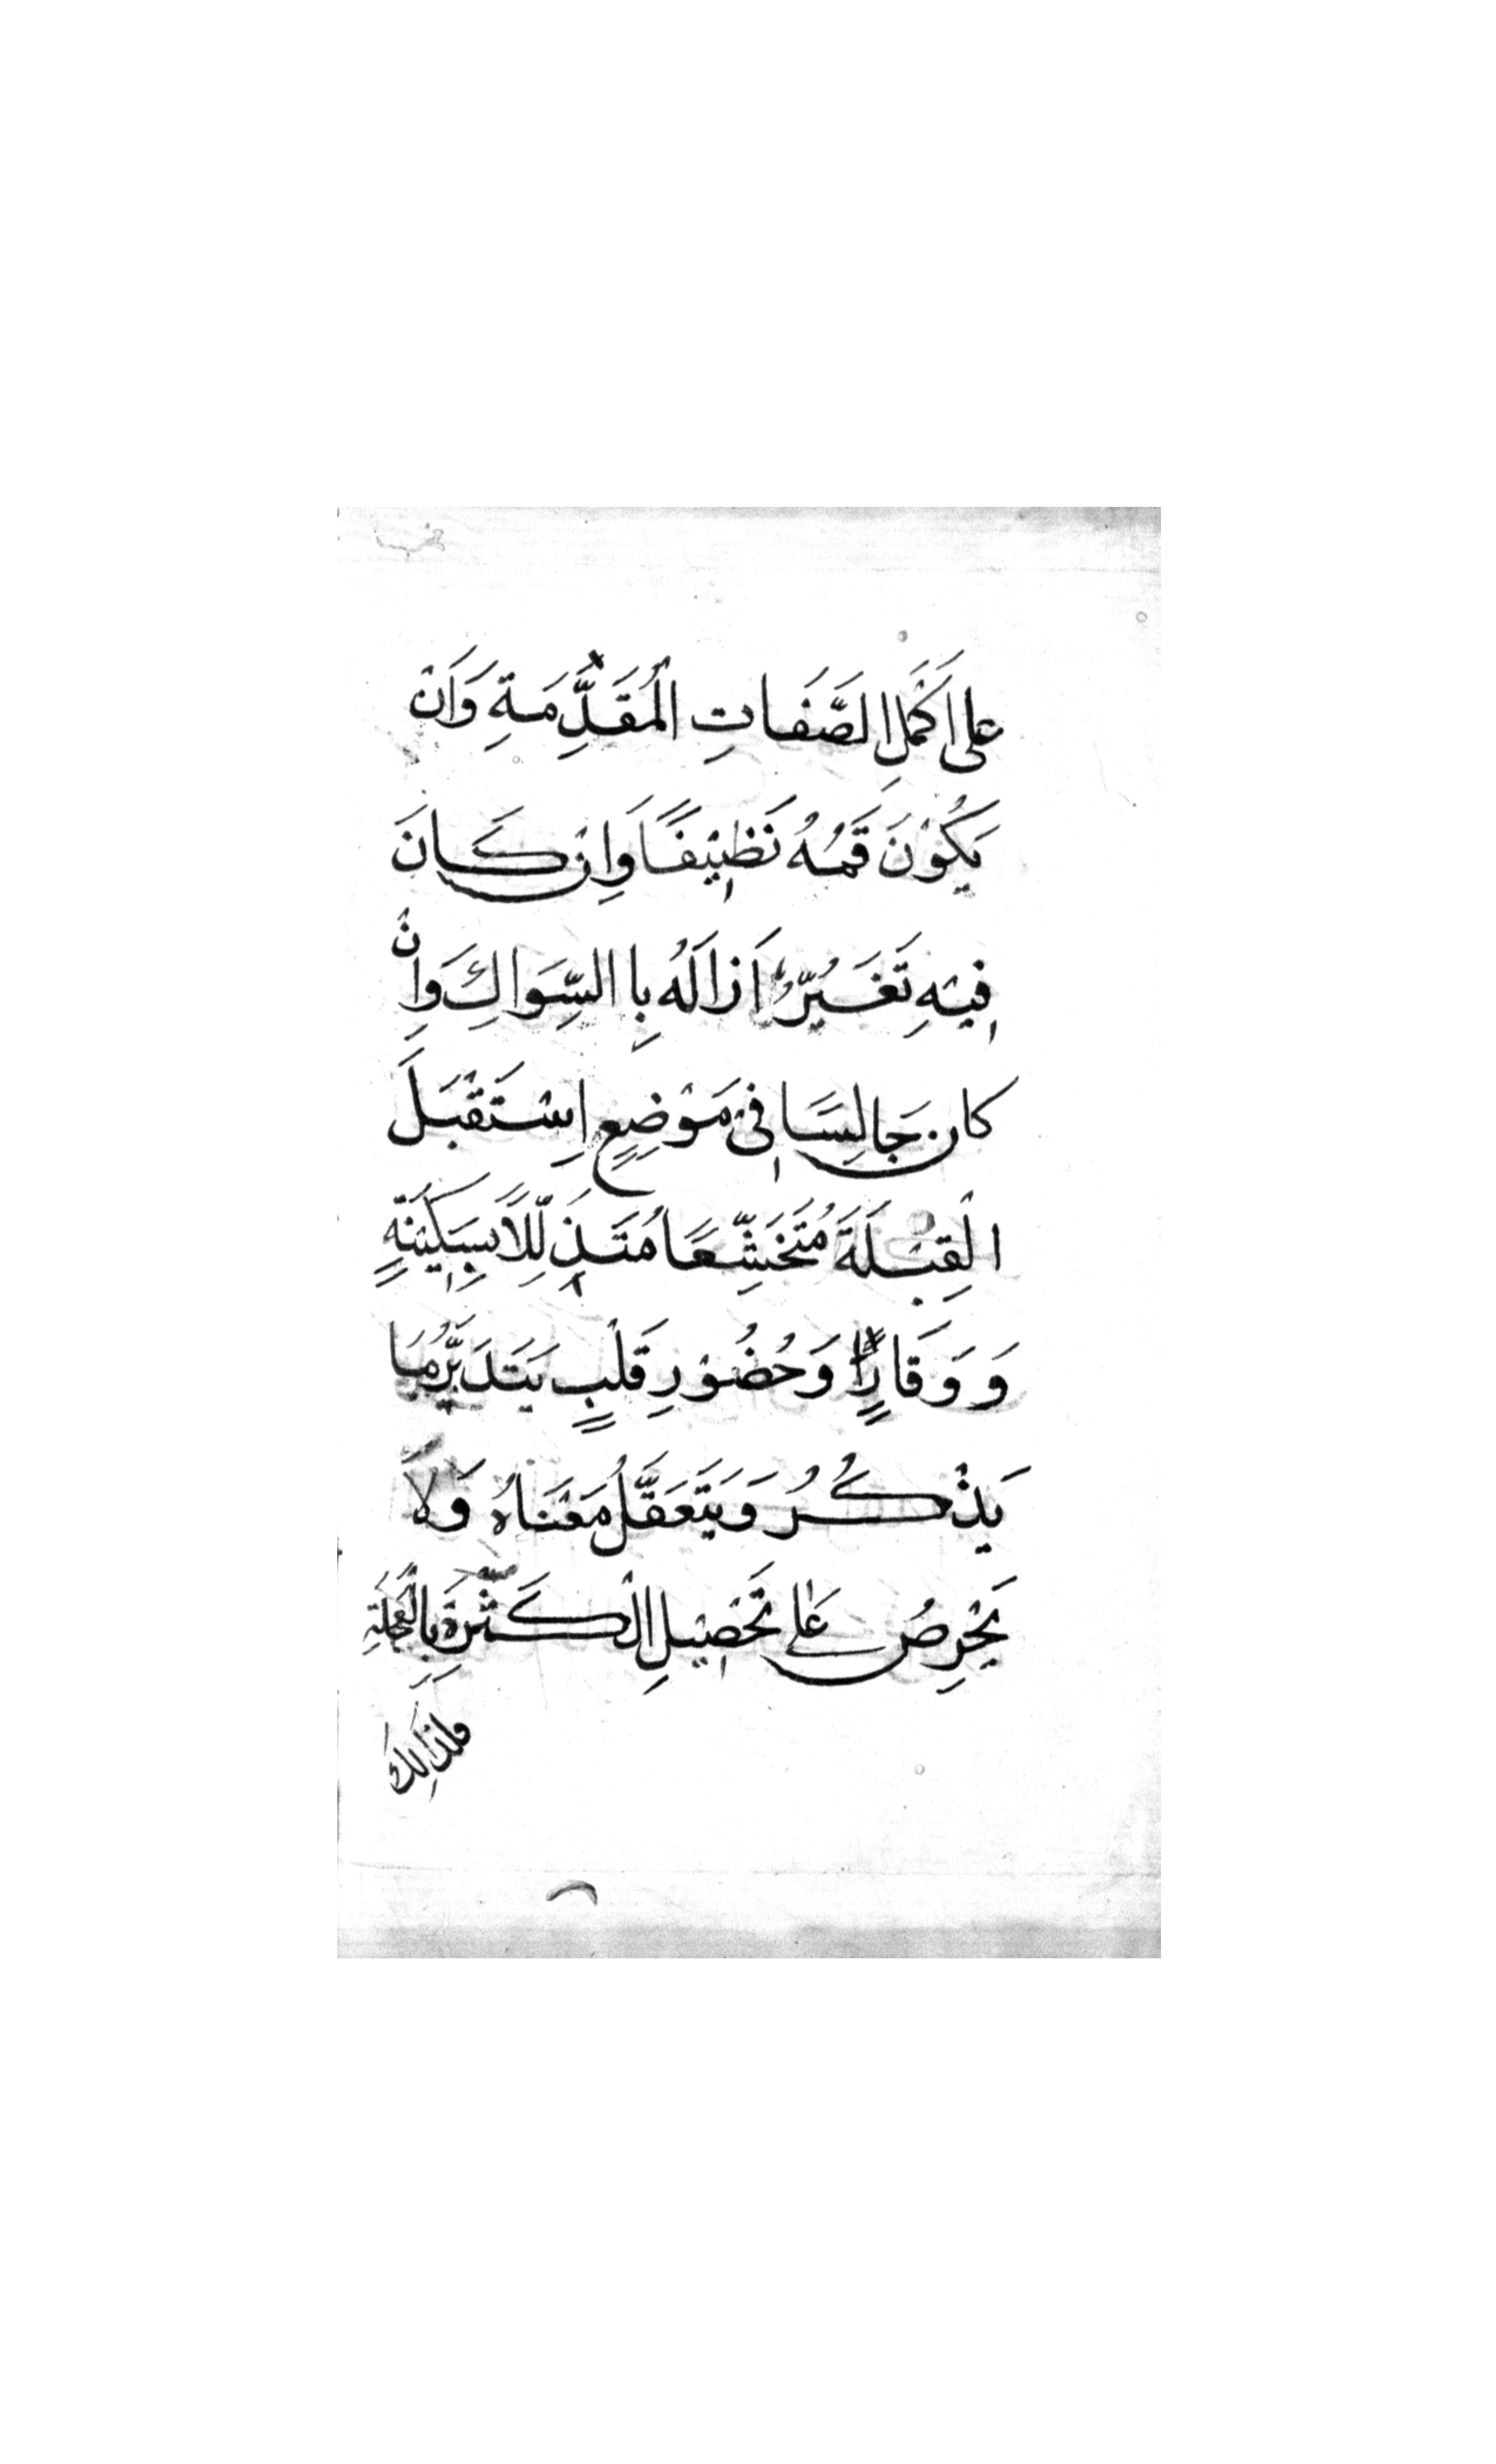 عَلى اَكْمَلِ الصَّفَاتِ الْمُقَدِّمَةِ وَاَنْ
يَكُوْنَ فَمُهُ نَظِيْفًا وَاِنْ كَانَ
فِيْهِ تَغَيُّرٌ اَزَالَهُ بِا السِّوَاكِ وَاِنْ
كان جَالِسًا فِىْ مَوْضِعٍ اِسْتَقْبَلَ
الْقِبْلَةَ مُتَخَشِّعًا مُتَذَلِّلًا بِسَكِيْنَةٍ
وَ وَقَارٍ وَحُضُوْرِ قَلْبٍ يَتَدَبَّرُ مَا
يَذْكُرُ وَيَتَعَقَّلُ مَعْنَاهُ وَلَا
يَحْرِصُ عَلى تَحْصِيْلِ الْكَثْرَةِ بِالْعَجَلَةِ
فلذالِكَ